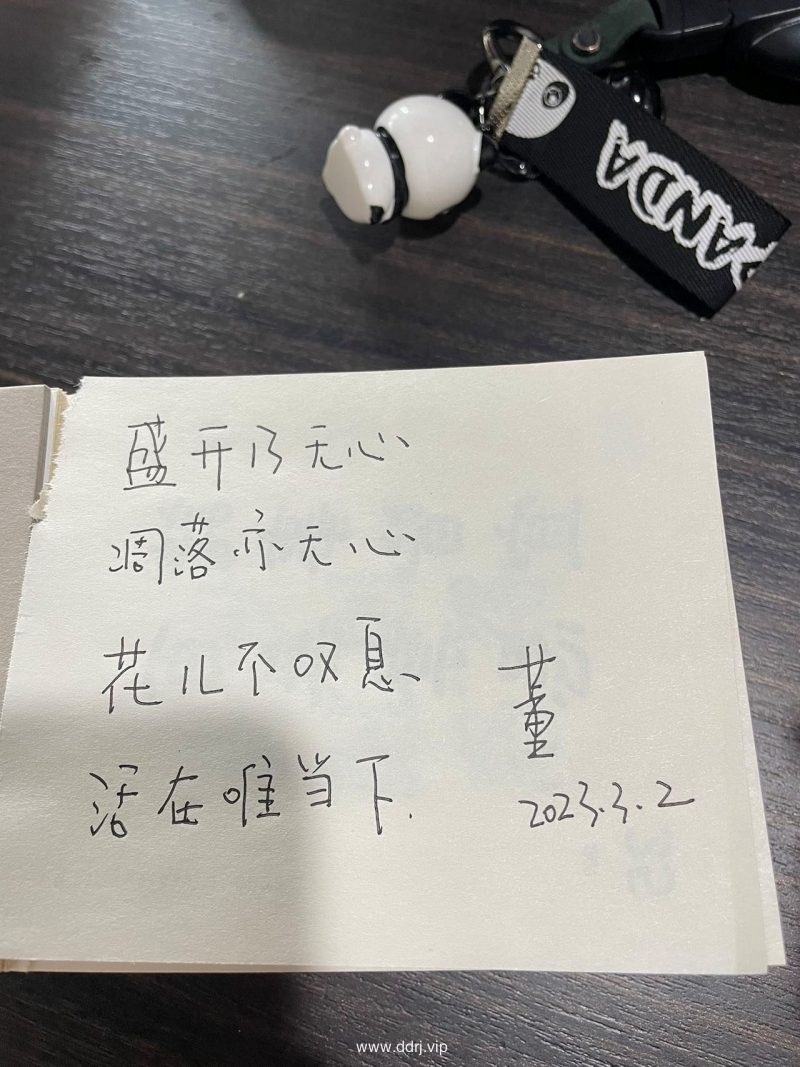 PANDA
盛开乃无心
凋落亦无心
花儿不叹息
活在唯当下.
董
2023.3.2
www.ddrj.vip